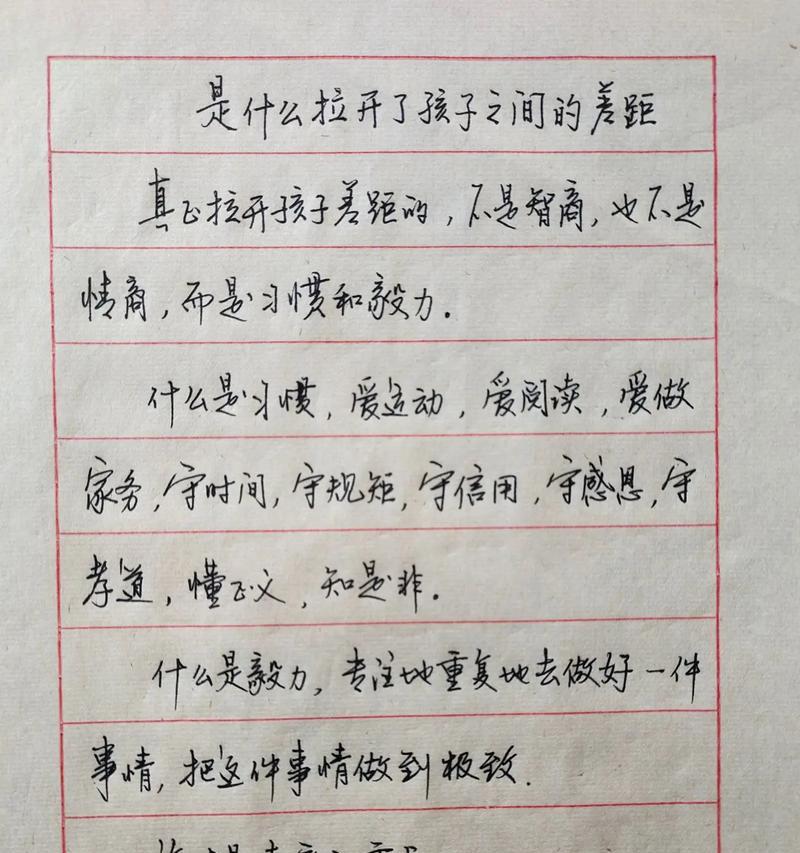 是什么拉开了孩子之间的差距
真正拉开孩子差距的，不是智商，也不是
情商，而是习惯和毅力.
什么是习惯，爱运动，爱阅读，爱做
家务，守时间，守规矩，守信用，守感恩，守
孝道，懂正义，知是非.
什么是毅力，专注地重复地去做好一件
事情，把这件事情做到极致.